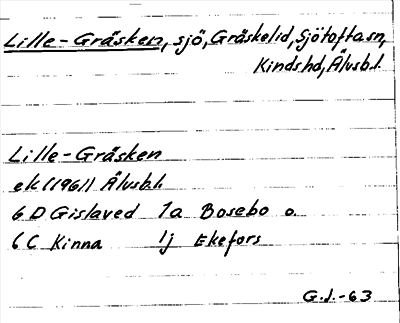 Lille-Gräsken, sjö, Gräskelid, Sjötofta sn,
Kinds hd, Älvsb.l.
Lille-Gräsken
ek (1961) Älvsb.l.
6 D Gislaved 1a Bosebo o.
6 C Kinna 1j Ekefors
G.J.-63